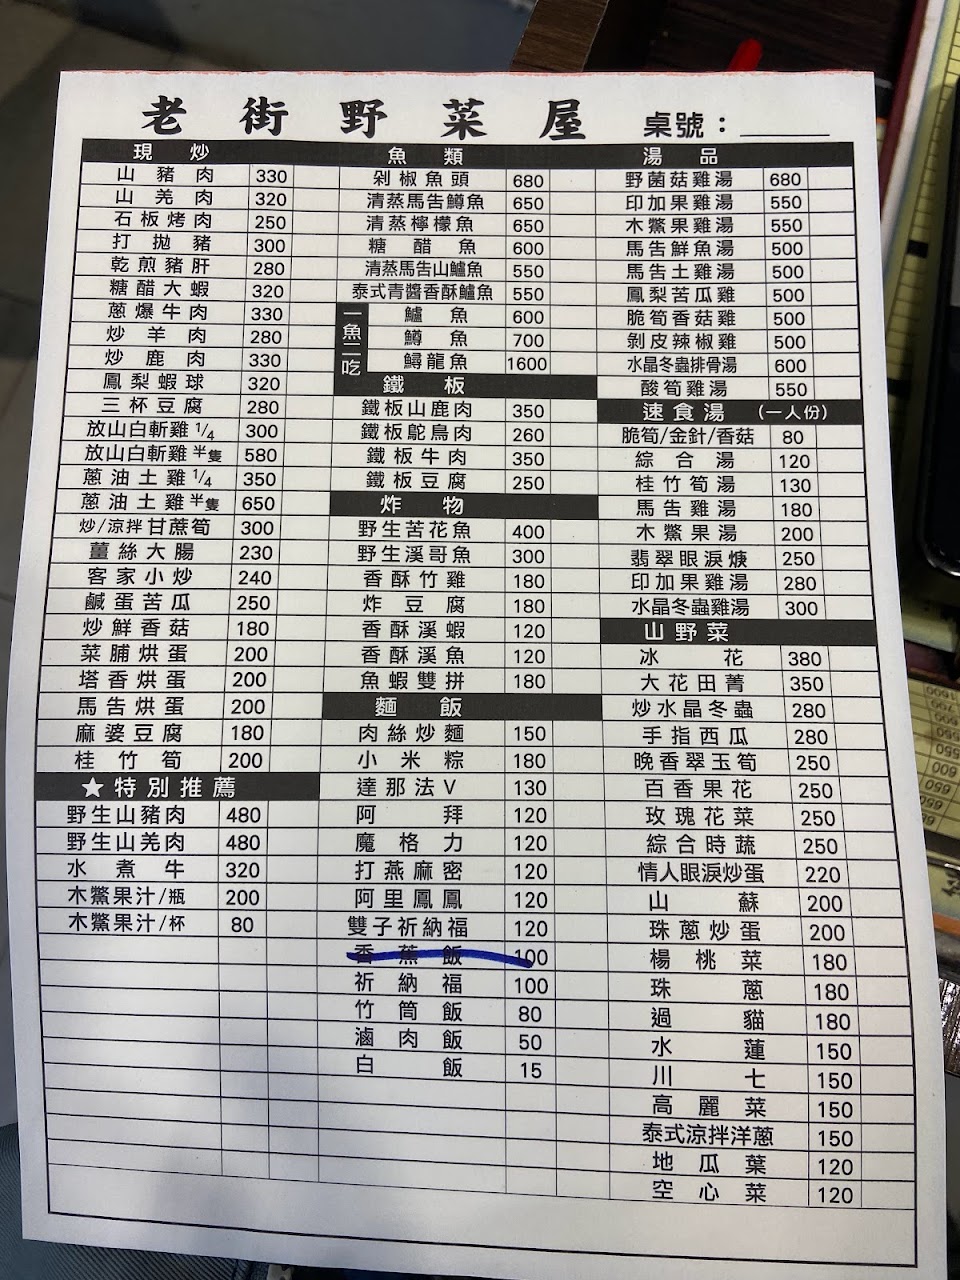 老街野菜屋 桌號：
現炒
山豬肉 330
山羌肉 320
石板烤肉 250
打拋豬 300
乾煎豬肝 280
糖醋大蝦 320
蔥爆牛肉 330
炒羊肉 280
炒鹿肉 330
鳳梨蝦球 320
三杯豆腐 280
放山白斬雞 1/4 300
放山白斬雞 半隻 580
蔥油土雞 1/4 350
蔥油土雞 半隻 650
炒/涼拌甘蔗筍 300
薑絲大腸 230
客家小炒 240
鹹蛋苦瓜 250
炒鮮香菇 180
菜脯烘蛋 200
塔香烘蛋 200
馬告烘蛋 200
麻婆豆腐 180
桂竹筍 200
★特別推薦
野生山豬肉 480
野生山羌肉 480
水煮牛 320
木鱉果汁/瓶 200
木鱉果汁/杯 80
魚類
剁椒魚頭 680
清蒸馬告鱒魚 650
清蒸檸檬魚 650
糖醋魚 600
清蒸馬告山鱸魚 550
泰式青醬香酥鱸魚 550
一魚二吃
鱸魚 600
鱒魚 700
鱘龍魚 1600
鐵板
鐵板山鹿肉 350
鐵板鴕鳥肉 260
鐵板牛肉 350
鐵板豆腐 250
炸物
野生苦花魚 400
野生溪哥魚 300
香酥竹雞 180
炸豆腐 180
香酥溪蝦 120
香酥溪魚 120
魚蝦雙拼 180
麵飯
肉絲炒麵 150
小米粽 180
達那法V 130
阿拜 120
魔格力 120
打燕麻密 120
阿里鳳鳳 120
雙子祈納福 120
香蕉飯 100
祈納福 100
竹筒飯 80
滷肉飯 50
白飯 15
湯品
野菌菇雞湯 680
印加果雞湯 550
木鱉果雞湯 550
馬告鮮魚湯 500
馬告土雞湯 500
鳳梨苦瓜雞 500
脆筍香菇雞 500
剝皮辣椒雞 500
水晶冬蟲排骨湯 600
酸筍雞湯 550
速食湯 (一人份)
脆筍/金針/香菇 80
綜合湯 120
桂竹筍湯 130
馬告雞湯 180
木鱉果湯 200
翡翠眼淚𤆬 250
印加果雞湯 280
水晶冬蟲雞湯 300
山野菜
冰花 380
大花田菁 350
炒水晶冬蟲 280
手指西瓜 280
晚香翠玉筍 250
百香果花 250
玫瑰花菜 250
綜合時蔬 250
情人眼淚炒蛋 220
山蘇 200
珠蔥炒蛋 200
楊桃菜 180
珠蔥 180
過貓 180
水蓮 150
川七 150
高麗菜 150
泰式涼拌洋蔥 150
地瓜葉 120
空心菜 120